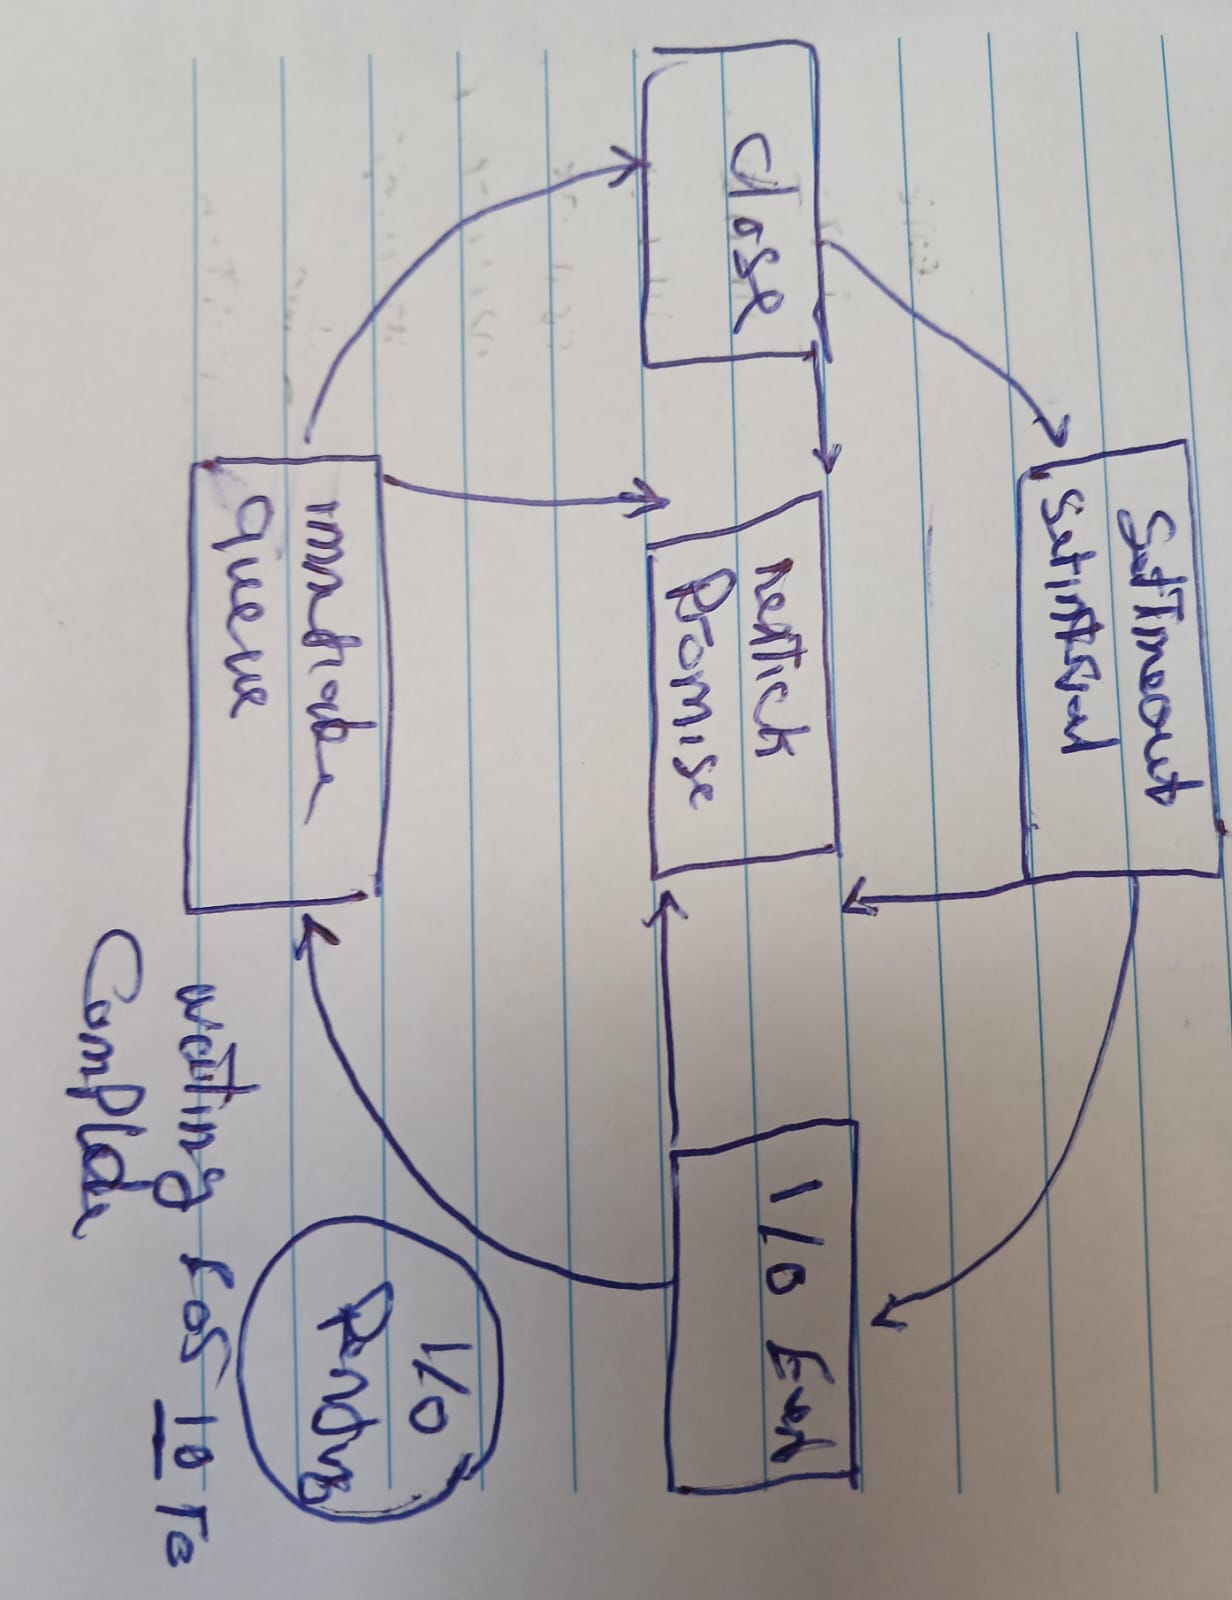 SetTimeout
Setinterval
close
nextick
Promise
I/O Event
immediate
queue
I/O
Pending
waiting for IO To
Complete